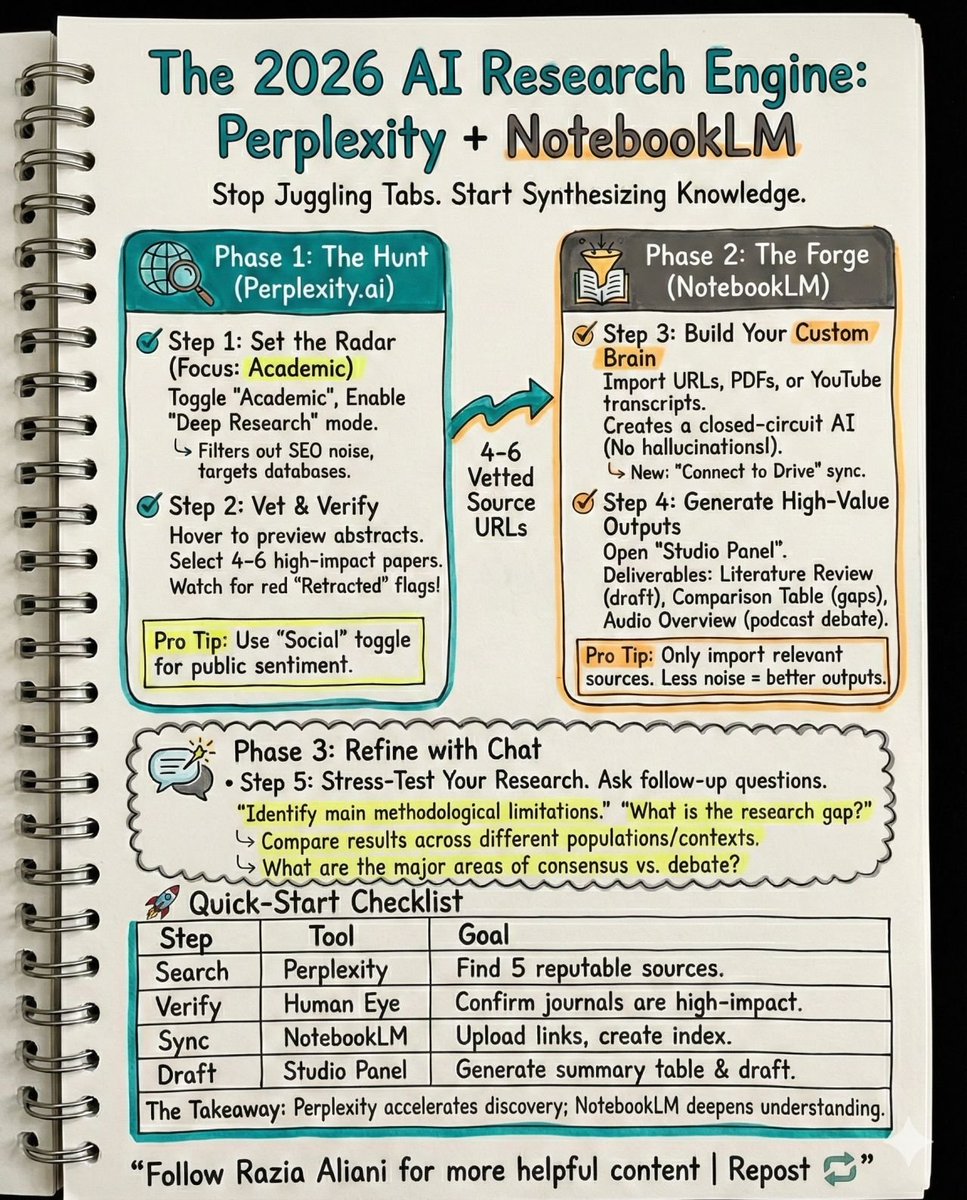 The 2026 AI Research Engine:
Perplexity + NotebookLM
Stop Juggling Tabs. Start Synthesizing Knowledge.
Phase 1: The Hunt
(Perplexity.ai)
Step 1: Set the Radar
(Focus: Academic)
Toggle "Academic", Enable
"Deep Research" mode.
↳ Filters out SEO noise,
targets databases.
Step 2: Vet & Verify
Hover to preview abstracts.
Select 4-6 high-impact papers.
Watch for red "Retracted" flags!
Pro Tip: Use "Social" toggle
for public sentiment.
4-6
Vetted
Source
URLs
Phase 2: The Forge
(NotebookLM)
Step 3: Build Your Custom
Brain
Import URLs, PDFs, or YouTube
transcripts.
Creates a closed-circuit AI
(No hallucinations!).
↳ New: "Connect to Drive" sync.
Step 4: Generate High-Value
Outputs
Open "Studio Panel".
Deliverables: Literature Review
(draft), Comparison Table (gaps),
Audio Overview (podcast debate).
Pro Tip: Only import relevant
sources. Less noise = better outputs.
Phase 3: Refine with Chat
• Step 5: Stress-Test Your Research. Ask follow-up questions.
"Identify main methodological limitations." "What is the research gap?"
↳ Compare results across different populations/contexts.
↳ What are the major areas of consensus vs. debate?
Quick-Start Checklist
Step Tool Goal
Search Perplexity Find 5 reputable sources.
Verify Human Eye Confirm journals are high-impact.
Sync NotebookLM Upload links, create index.
Draft Studio Panel Generate summary table & draft.
The Takeaway: Perplexity accelerates discovery; NotebookLM deepens understanding.
"Follow Razia Aliani for more helpful content | Repost 🔁"